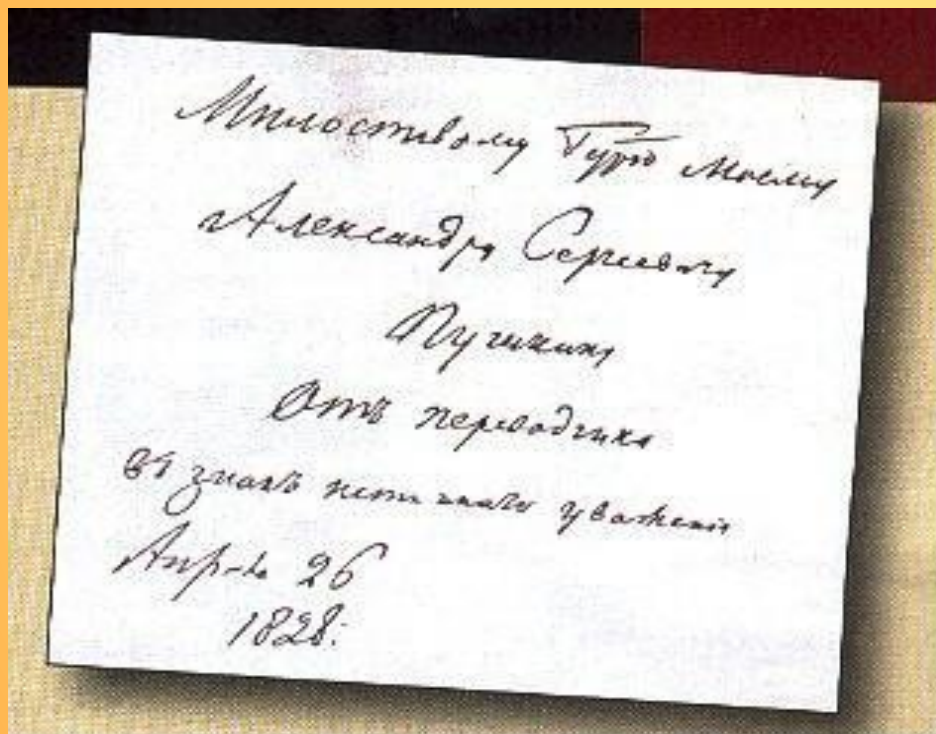 Милостивому Гдрю моему
Александру Сергеевичу
Пушкину
Отъ переводчика
въ знакъ истиннаго уваженія
Апрѣля 26
1828: